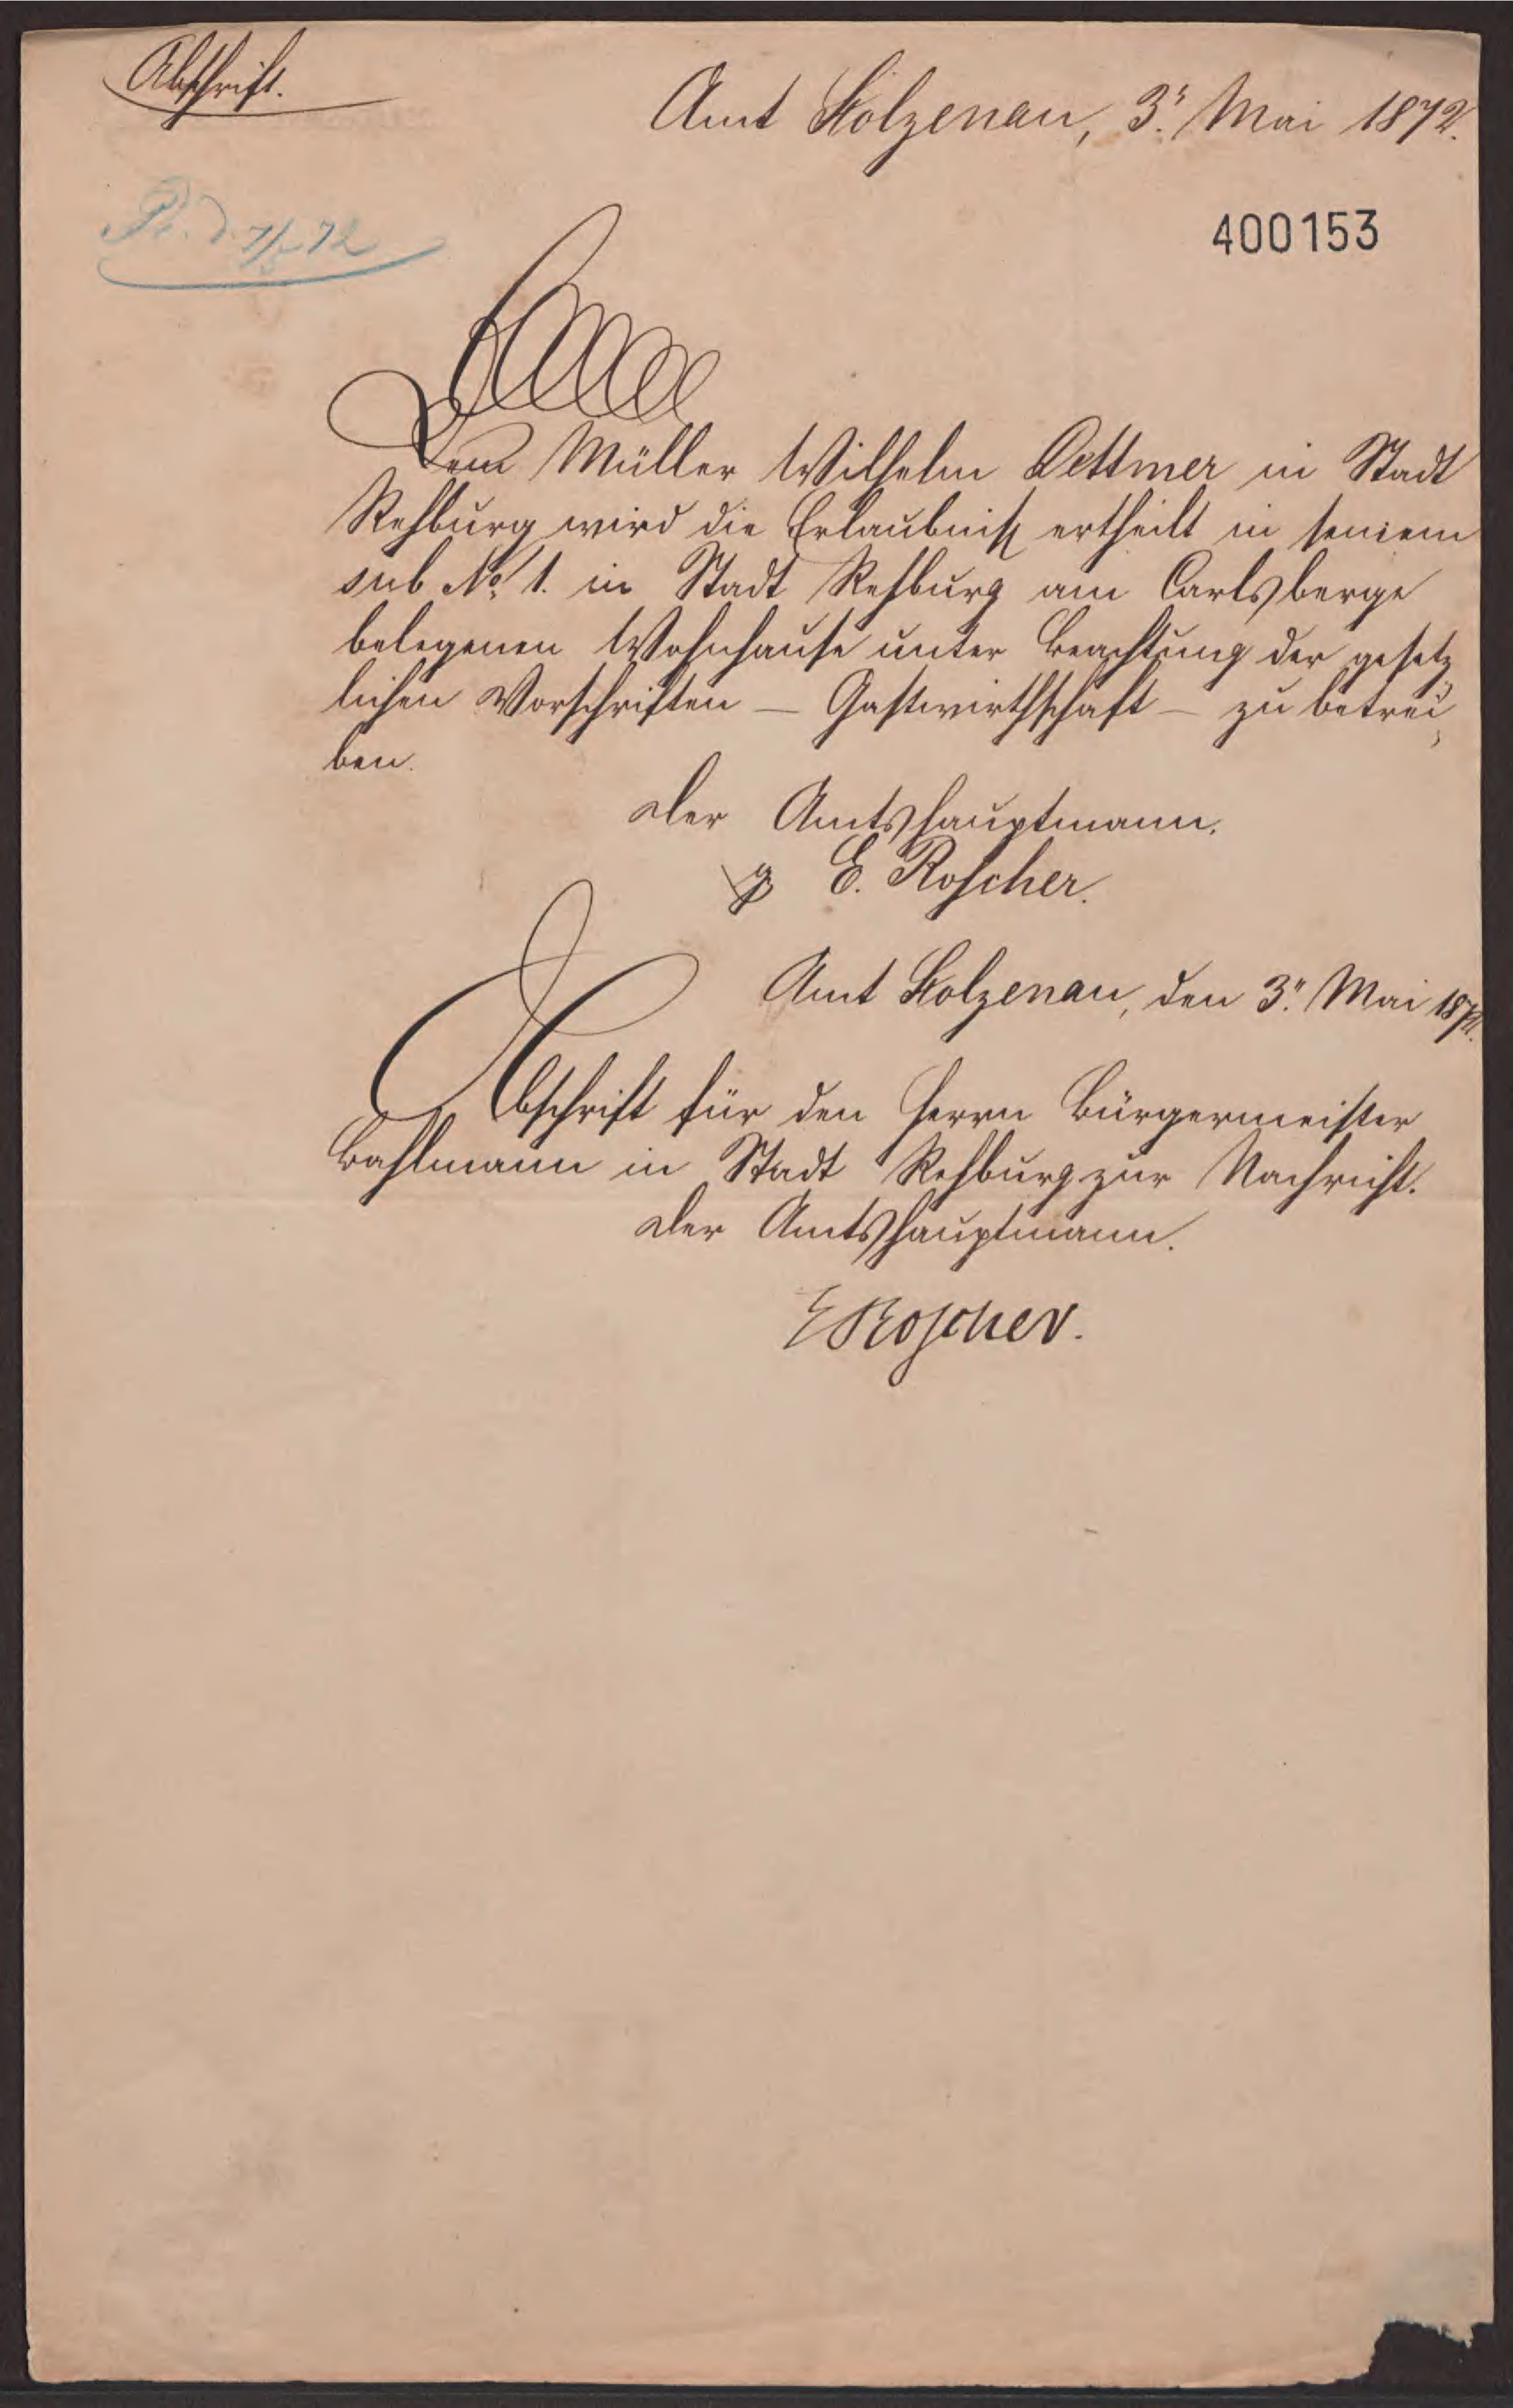 Abschrift.
Amt Stolzenau, 3t. Mai 1872.
Pr. d. 7/5 72
400153
Dem Müller Wilhelm Dettmer in Stadt
Rehburg wird die Erlaubniß ertheilt in seinem
sub No 1. in Stadt Rehburg am Carlsberge
belegenen Wohnhause unter Beachtung der gesetz
lichen Vorschriften – Gastwirthschaft – zu betrei
ben.
Der Amtshauptmann.
E. Roscher.
Amt Stolzenau, den 3t. Mai 1872.
Abschrift für den Herrn Bürgermeister
Bahlmann in Stadt Rehburg zur Nachricht.
Der Amtshauptmann.
E Roscher.